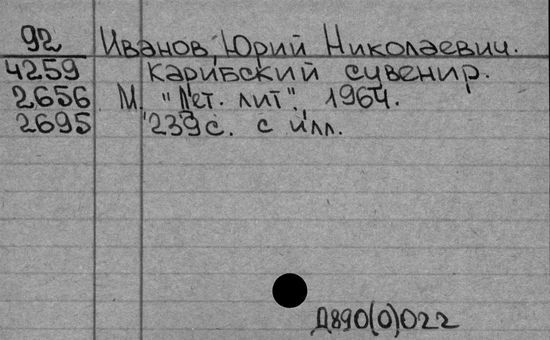 92 Иванов, Юрий Николаевич.
4259 Карибский сувенир.
2656 М. "Дет. лит", 1964.
2695 239 с. с илл.
Д890(0)022